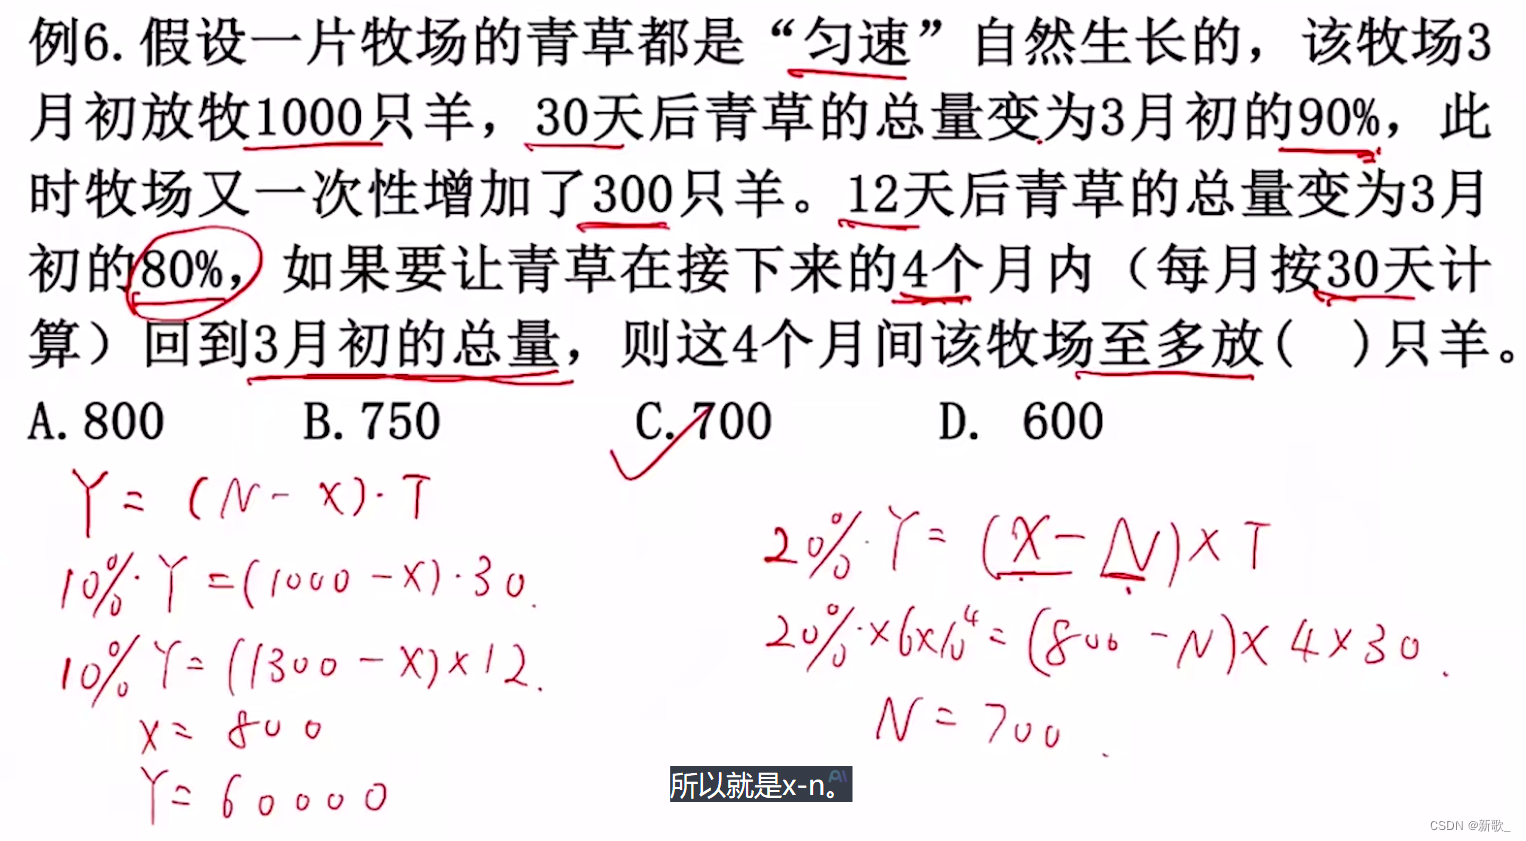 例6.假设一片牧场的青草都是“匀速”自然生长的，该牧场3
月初放牧1000只羊，30天后青草的总量变为3月初的90%，此
时牧场又一次性增加了300只羊。12天后青草的总量变为3月
初的80%，如果要让青草在接下来的4个月内（每月按30天计
算）回到3月初的总量，则这4个月间该牧场至多放( )只羊。
A.800 B.750 C.700 D. 600
Y=(N-X)·T
10%·Y=(1000-X)·30.
10%Y=(1300-X)×12.
X=800
Y=60000
20%·Y=(X-N)×T
20%·×6×10⁴=(800-N)×4×30.
N=700.
所以就是x-n。
CSDN @新歌_